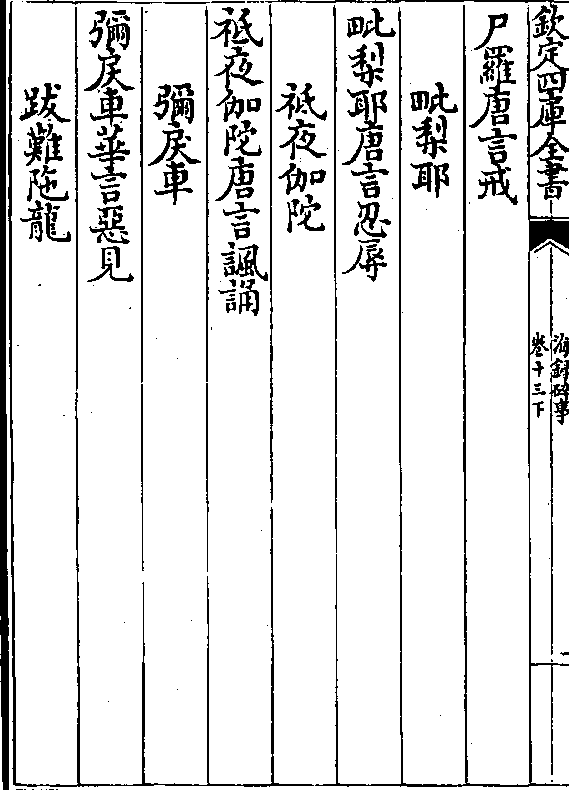 欽定四庫全書
海録碎事
卷十三下
尸羅唐言戒
毗梨耶
毗梨耶唐言忍辱
祇夜伽陀
祇夜伽陀唐言諷誦
彌戾車
彌戾車華言惡見
跋難陁龍